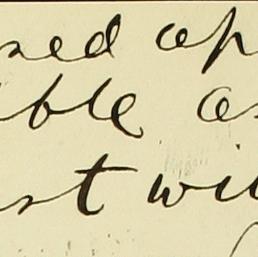 sed ap
ble as
st wil